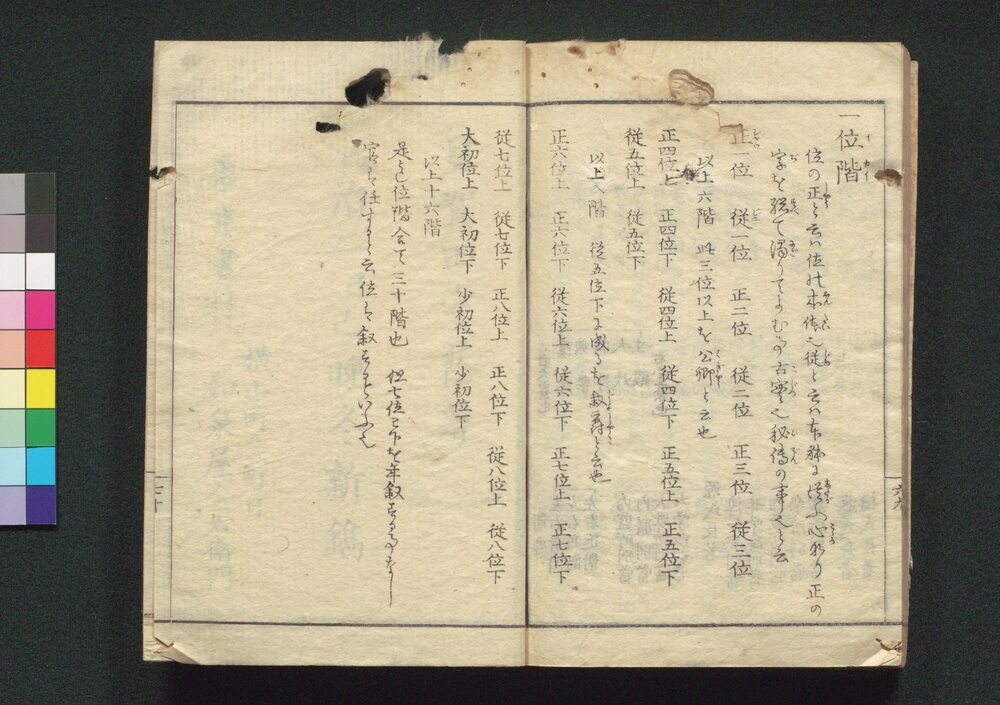 一位階
位の正と云ハ位の本体也従と云ハ本体に従ふ心なり正の
字を皆て濁りてよむ事古実之秘傳の事也と云
正一位 従一位 正二位 従二位 正三位 従三位
以上六階 此三位以上を公卿と云也
正四位上 正四位下 従四位上 従四位下 正五位上 正五位下
従五位上 従五位下
以上八階 従五位下に成るを叙爵と云也
正六位上 正六位下 従六位上 従六位下 正七位上 正七位下
従七位上 従七位下 正八位上 正八位下 従八位上 従八位下
大初位上 大初位下 少初位上 少初位下
以上十六階
是迄位階合て三十階也 但七位已下を年叙する事なし
官にハ任すると云位にハ叙するといふ也
六九
七十